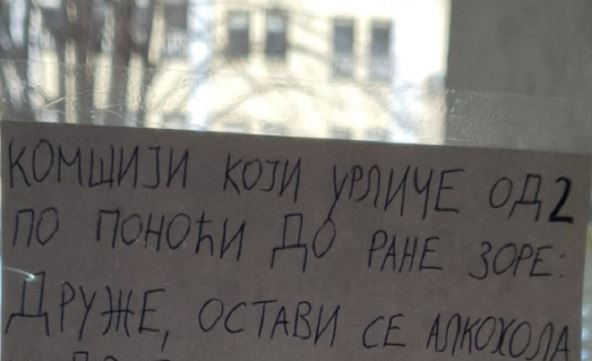 КОМШИЈИ КОЈИ УРЛИЧЕ ОД 2
ПО ПОНОЋИ ДО РАНЕ ЗОРЕ:
ДРУЖЕ, ОСТАВИ СЕ АЛКОХОЛА